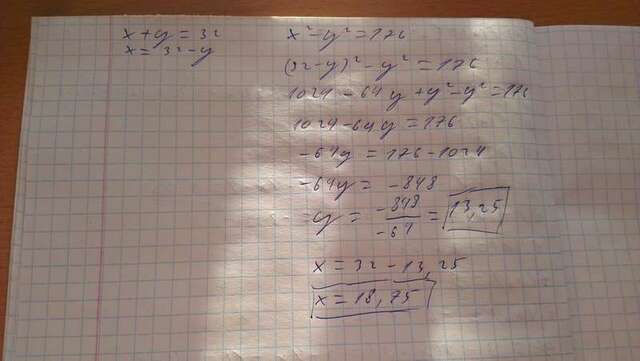 x + y = 32
x = 32 - y
x² - y² = 176
(32 - y)² - y² = 176
1024 - 64y + y² - y² = 176
1024 - 64y = 176
-64y = 176 - 1024
-64y = -848
y = -848/-64 = 13,25
x = 32 - 13,25
x = 18,75